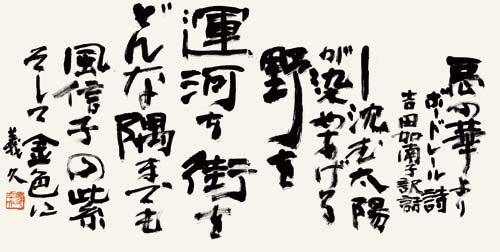 悪の華より
ボードレール詩
吉田加南子訳詩
―沈む太陽
が染めあげる
野を
運河を街を
どんな隅までも
風信子の紫
そして金色に
義久